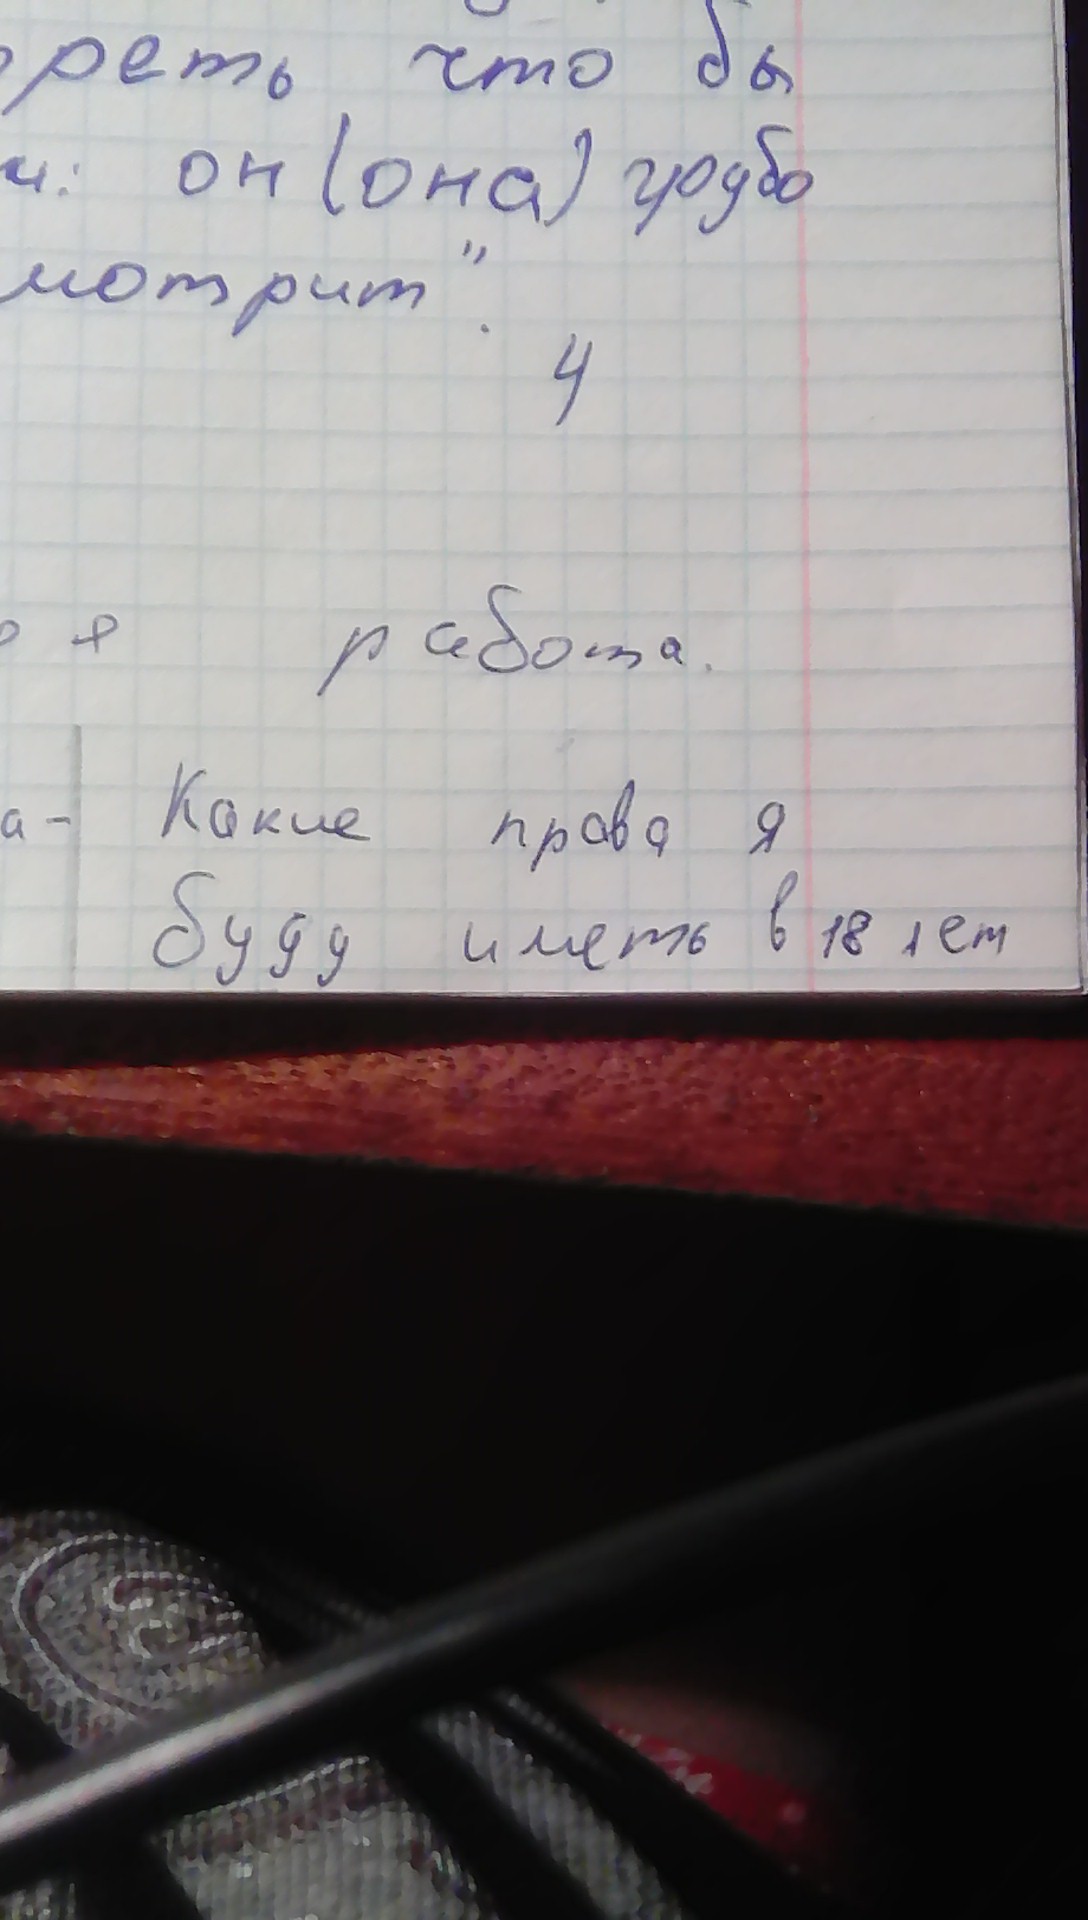 реть что бы
он (она) грубо
мотрит".
4
я работа.
а- Какие права я
буду иметь в 18 лет